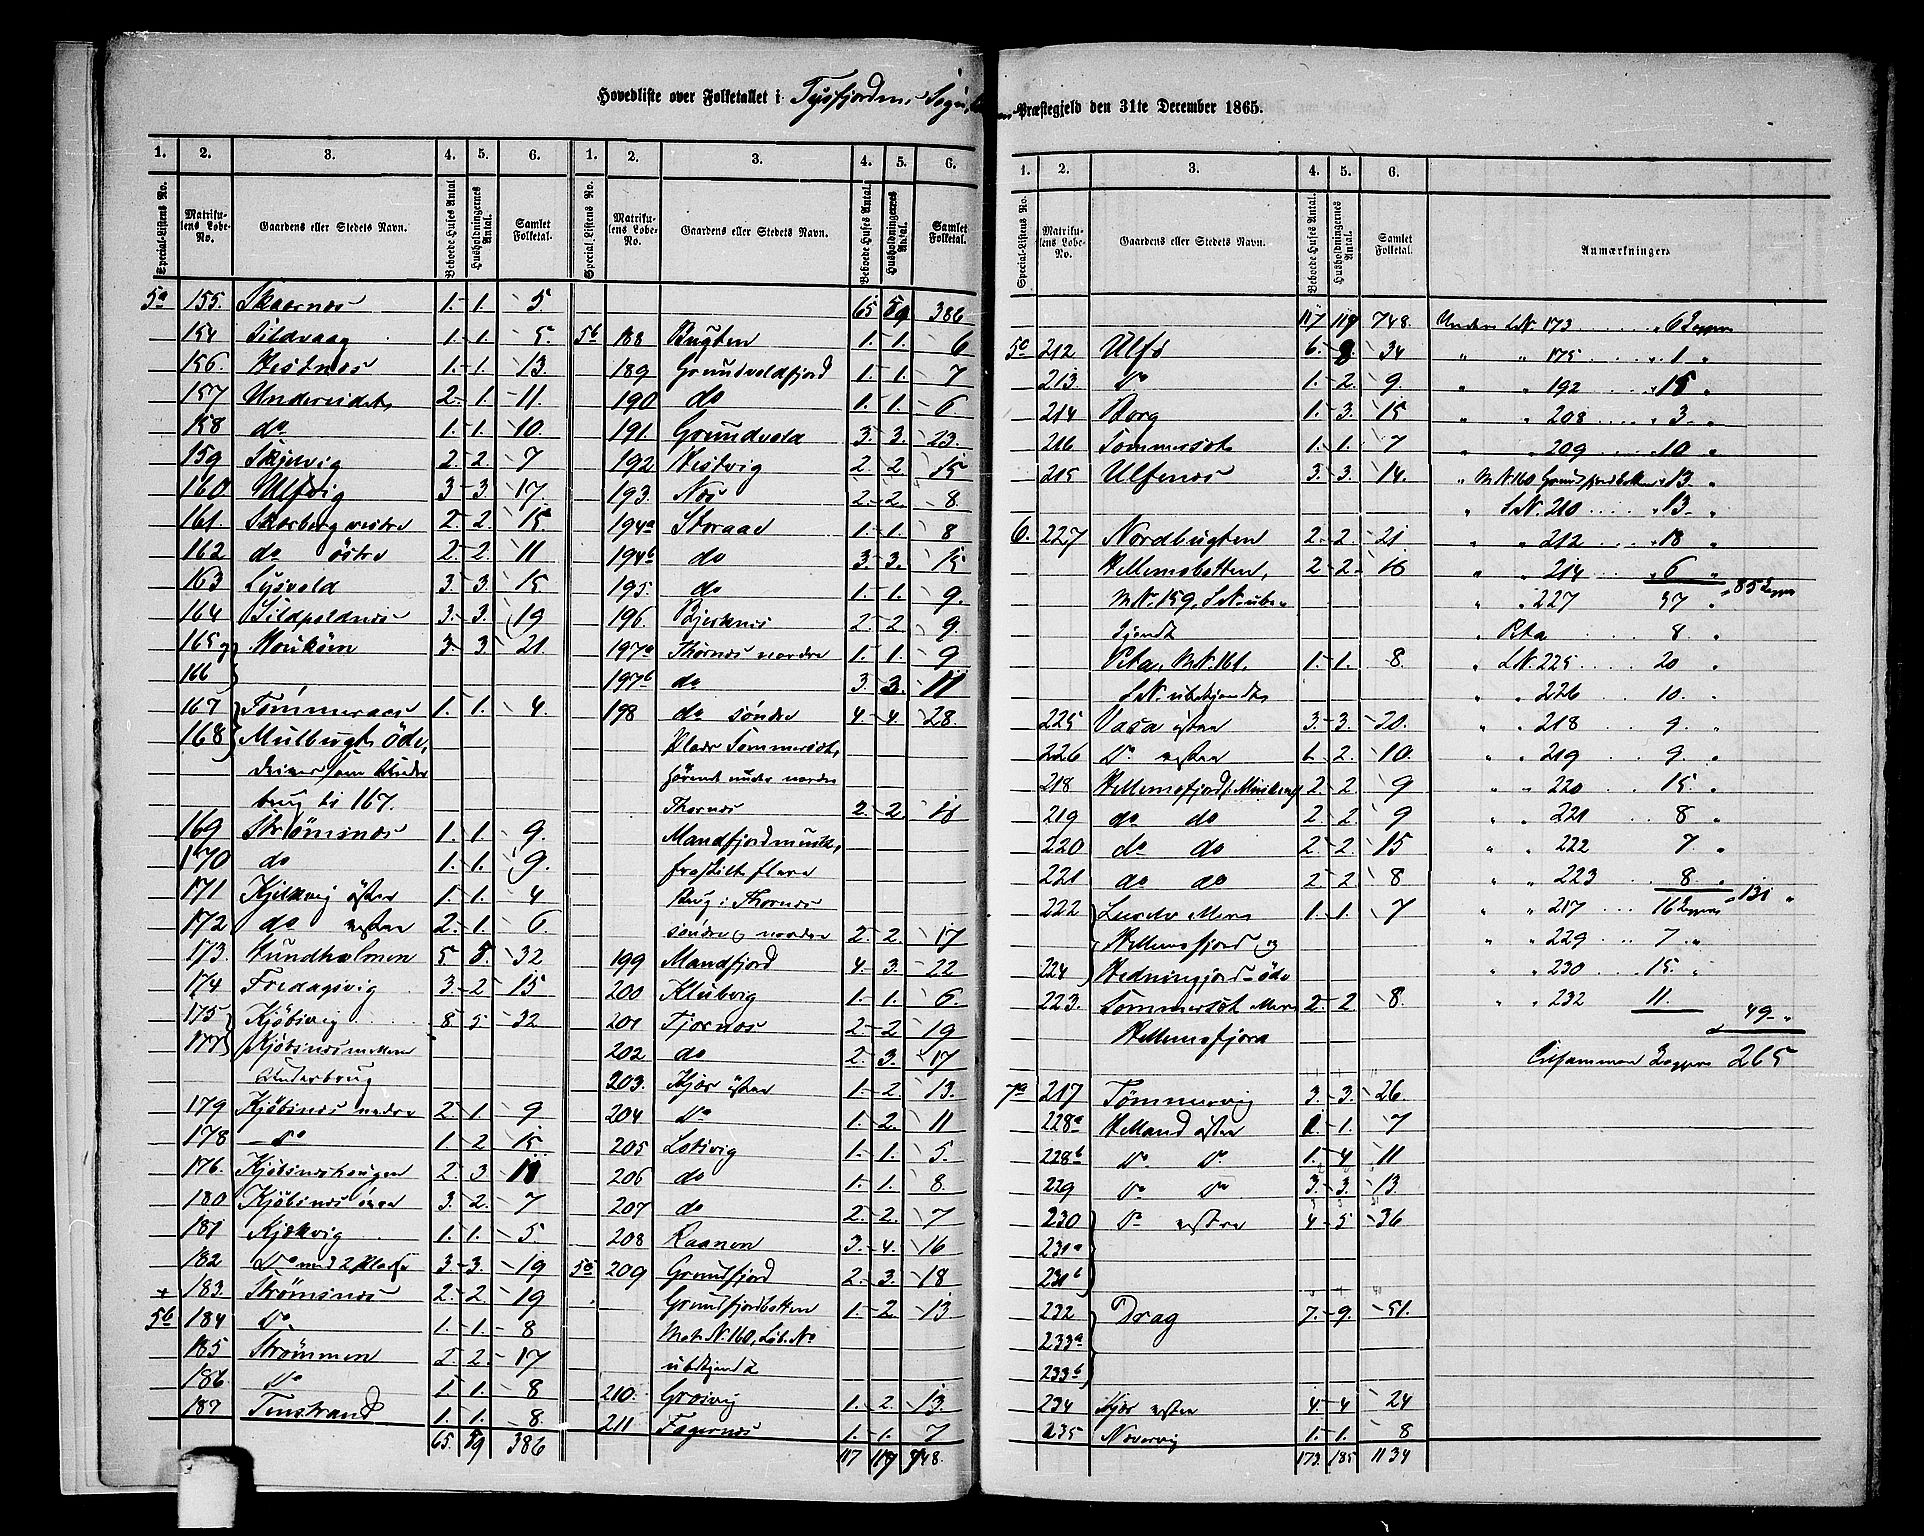 Hovedliste over Folketallet i Tysfjorden Sogn
Præstegjeld den 31te December 1865.
1. 2. 3. 4. 5. 6. 1. 2. 3. 4. 5. 6.
Special-Listens No. Matrikulens Løbe-No. Gaardens eller Stedets Navn. Beboede Huses Antal Husholdningernes Antal. Samlet Folketal. Special-Listens No. Matrikulens Løbe-No. Gaardens eller Stedets Navn. Beboede Huses Antal. Husholdningernes Antal. Samlet Folketal.
5a 155. Skarnes 1. 1. 5
154 Sildvaag 1. 1. 5.
156. Hestnes 1. 1. 13.
157 Undereidet 2. 1. 11.
158 do 1. 1. 10
159 Skjelvig 2. 2. 7
160 Ulfsvig 3. 3. 17.
161 Skorberg vestre 2. 2. 15
162 do östre 2. 2. 11
163 Lysvold 3. 3. 15
164 Sildpoldnes 3. 3. 19
165 og 3. 3. 21
166
167 Tømmeraas 1. 1. 4.
168 Mulbugt öde,
brug til 167.
169 Strømsnes 1. 1. 9.
170 do 1. 1. 9.
171 Kjelkvig östre 1. 1. 4
172 do vestre 2. 1. 6.
173. Hundholmen 5 5. 32
174 Fredagsvig 3. 2 15
175 Kjöbsvig 8 5. 32
177 Kjöbsnes mellem
Underbrug
179 Kjöbsnes nedre 2 1. 9
178 Do 1. 2 15
176. Kjöbsneshaugen 2 3 11
180 Kjöbsnes övre 3. 2. 7
181 Kjelkvig 1. 1. 5
182 Do med 2 Pladse 3. 3. 19
+ 183. Strömsnes 2. 2. 19
5b 184 Do 1. 1. 8
185 Strømmen 2. 2. 17
186. Do 1 1. 8
187 Tenstrand 1. 1. 8.
65. 59 386
65 59 386
5b 188 Bugten 1. 1. 6
189 Grundvoldfjord 1. 1. 7
190 do 1. 1. 6
191. Grundvold 3. 3. 23.
192 Hestvig 2. 2 15
193. Nes 2. 2. 8.
194a Storaae 1. 1. 8
194b do 3. 3. 15
195. do 1. 1. 9.
196. Bjerknes 2. 2 9.
197a Thornes nordre 1. 1. 9
197b do 3. 3. 11
198 do söndre 4. 4. 28.
Plads Sommerset,
hörende under nordre
Thornes 2. 2. 18
Mandfjordmulen,
Brug i Thornes
söndre og nordre 2. 2. 17
199 Mandfjord 4. 3. 22
200 Klubvig 1. 1. 6.
201 Tjornes 2. 2. 19
202 do 2. 3. 17
203. Kjær östre 1. 2. 13.
204 Do 1. 2. 11
205 Lotsvig 1. 1. 5.
206 do 1. 1. 8.
207 do 2. 2. 7
208 Raanen 3. 4. 16
5c 209 Grundfjord 2. 3. 18
Grundfjordbotten 1. 2. 13
Mat. N. 160, Löb. No
ubekjendt
210. Græsvig 1. 2. 13.
211 Fagernes 1. 1. 7
117 119 748.
1. 2. 3. 4. 5. 6.
Special-Listens No. Matrikulens Løbe-No. Gaardens eller Stedets Navn. Beboede Huses Antal. Husholdningernes Antal. Samlet Folketal. Anmærkninger.
117 119 748.
5c 212 Ulfs 6. 8. 34
213. Do 1. 2. 9.
214 Borg 1. 3. 15
216 Sommerset 1. 1. 7
215 Ulfsnes 3. 3. 14.
6. 227 Nordbugten 2. 2. 21
Hellemobotten, 2 2. 18
M.N. 159, L.N. ube-
kjendt
Peta, M.N. 161. 1. 1. 8
L.N. ubekjendt
225 Vasa östre 3. 3. 20.
226 Do vestre 2. 10.
218 2 2 9
219 do do 2. 2. 9
220 do do 2 2. 15
221 do do 2 2 8
222 1. 1. 7
Hellemofjord og
224 öde
223. Sommerset 2. 2. 8
Hellemofjord
7a 217 Tömmervig 3. 3. 26
228a Helland östre 1 1. 7
228b Do Do 1. 4. 11
229 Do Do 3. 3. 13
230 Do vestre 4 5 36
231a
231b
232 Drag 7. 9. 51.
233a
233b
234 Kjær vestre 4. 4 24
235 1. 1. 8
173. 185 1134
Under L.N. 173 6 Lapper
" " 175 1 "
" " 192 15 "
" " 208 3 "
" " 209 10 "
" M.N. 160 Grundfjordbotten 13 "
" L.N. 210 13 "
" " 212 18 "
" " 214 6 " 85 Lapper
" " 227 37 "
" Peta 8 "
" L.N. 225 20 "
" " 226 10. "
" " 218 9 "
" " 219 9. "
" " 220 15. "
" " 221 8 "
" " 222 7. "
" " 223 8. " 131 "
" " 217 16 Lapper
" " 229 7. "
" " 230 15. "
" " 232 11. 49 "
Tilsammen Lapper 265